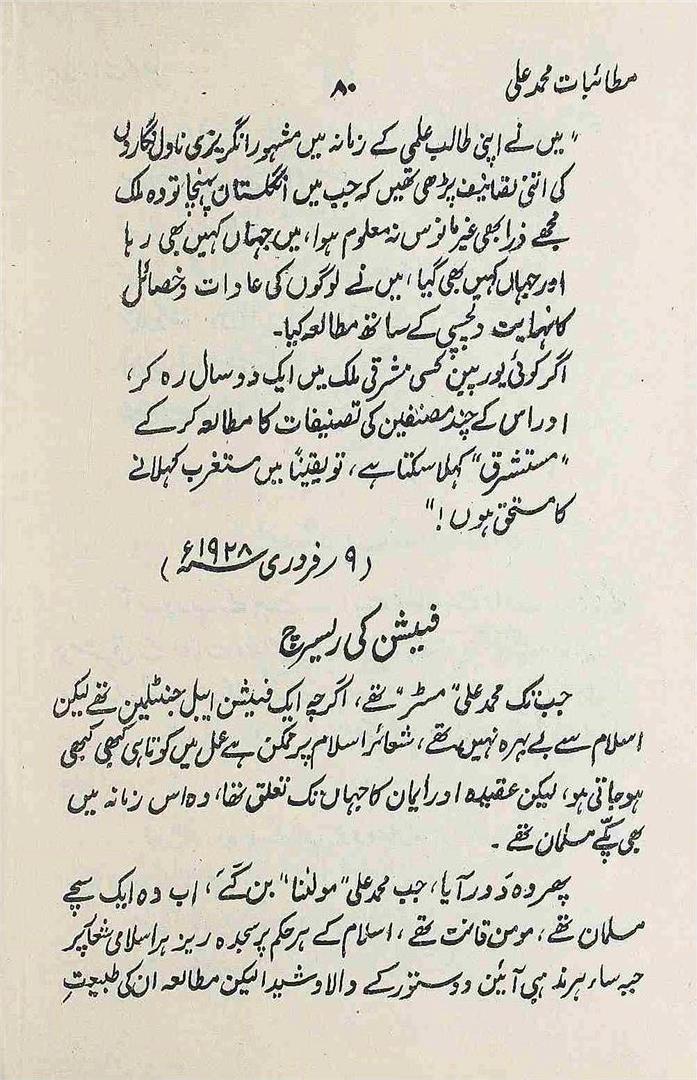 مطائبات محمد علی
۸۰
"میں نے اپنی طالب علمی کے زمانہ میں مشہور انگریزی ناول نگاروں
کی اتنی تصانیف پڑھی تھیں کہ جب میں انگلستان پہنچا تو وہ ملک
مجھے ذرا بھی غیر مانوس نہ معلوم ہوا، میں جہاں کہیں بھی رہا
اور جہاں کہیں بھی گیا، میں نے لوگوں کی عادات و خصائل
کا نہایت دلچسپی کے ساتھ مطالعہ کیا۔
اگر کوئی یورپین کسی مشرقی ملک میں ایک دو سال رہ کر،
اور اس کے چند مصنفین کی تصنیفات کا مطالعہ کر کے
"مستشرق" کہلا سکتا ہے، تو یقیناً میں مستغرب کہلانے
کا مستحق ہوں!"
(۹ر فروری ۱۹۲۸ء)
فیشن کی ریسرچ
جب تک محمد علی "مسٹر" تھے، اگرچہ ایک فیشن ایبل جنٹلمین تھے لیکن
اسلام سے بے بہرہ نہیں تھے، شعائر اسلام پر ممکن ہے عمل میں کوتاہی کبھی کبھی
ہو جاتی ہو، لیکن عقیدہ اور ایمان کا جہاں تک تعلق تھا، وہ اس زمانہ میں
بھی پکّے مسلمان تھے۔
پھر وہ دَور آیا، جب محمد علی "مولٰنا" بن گئے، اب وہ ایک سچے
مسلمان تھے، مومن قانت تھے، اسلام کے ہر حکم پر سجدہ ریز ہر اسلامی شعار پر
جبہ ساء ہر مذہبی آئین و دستور کے والا و شیدا لیکن مطالعہ ان کی طبیعتِ